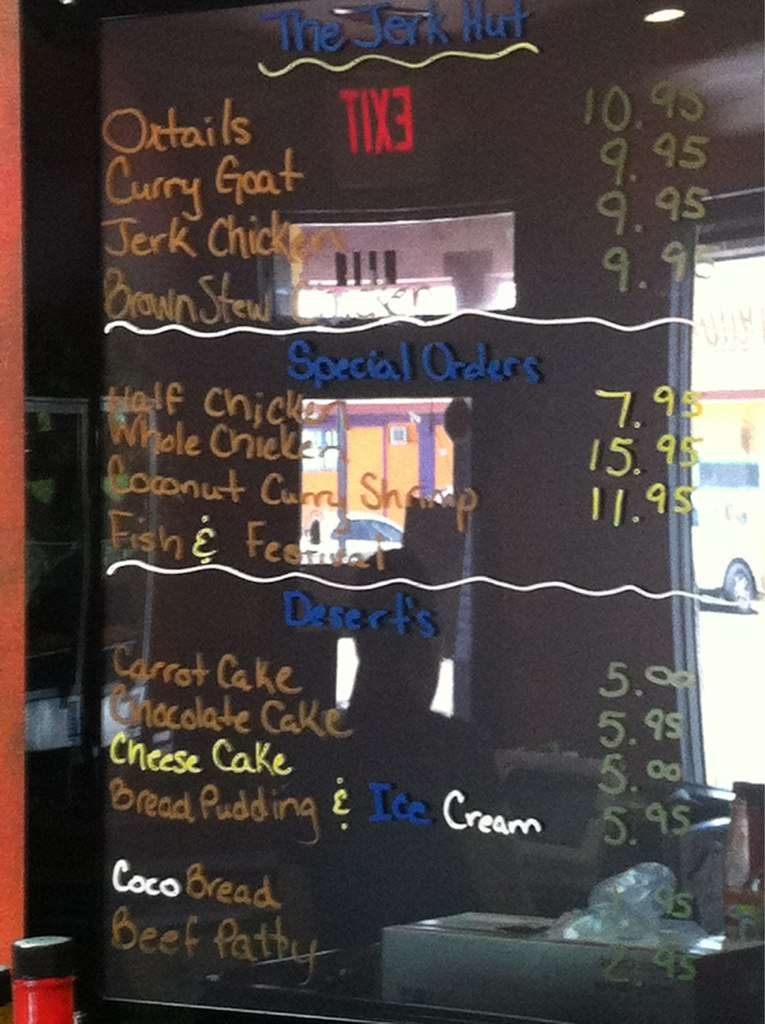 The Jerk Hut
EXIT
Oxtails 10.95
Curry Goat 9.95
Jerk Chicken 9.95
Brown Stew Chicken 9.95
Special Orders
Half Chicken 7.95
Whole Chicken 15.95
Coconut Curry Shrimp 11.95
Fish & Festival
Desert's
Carrot Cake 5.00
Chocolate Cake 5.95
Cheese Cake 5.00
Bread Pudding & Ice Cream 5.95
Coco Bread
Beef Patty 2.95